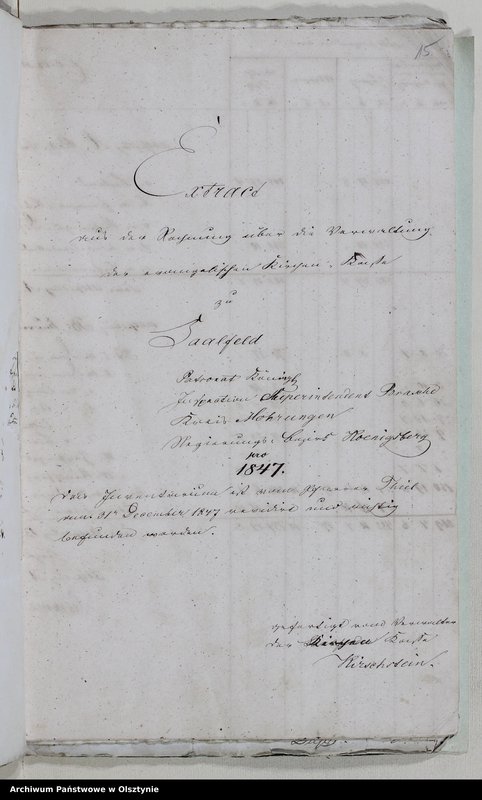 15
Extract
aus der Rechnung über die Verwaltung
der evangelischen Kirchen-Kasse
zu
Saalfeld
Patronat Königl
Inspection Superintendent
Kreis Mohrungen
Regierungs-Bezirk Koenigsberg
pro
1847.
Das Inventarium ist vom Theil
am 31t December 1847 revidirt und richtig
befunden worden.
gefertigt vom Verwalter
der Kirchen Kasse
Kirschstein.
Archiwum Państwowe w Olsztynie